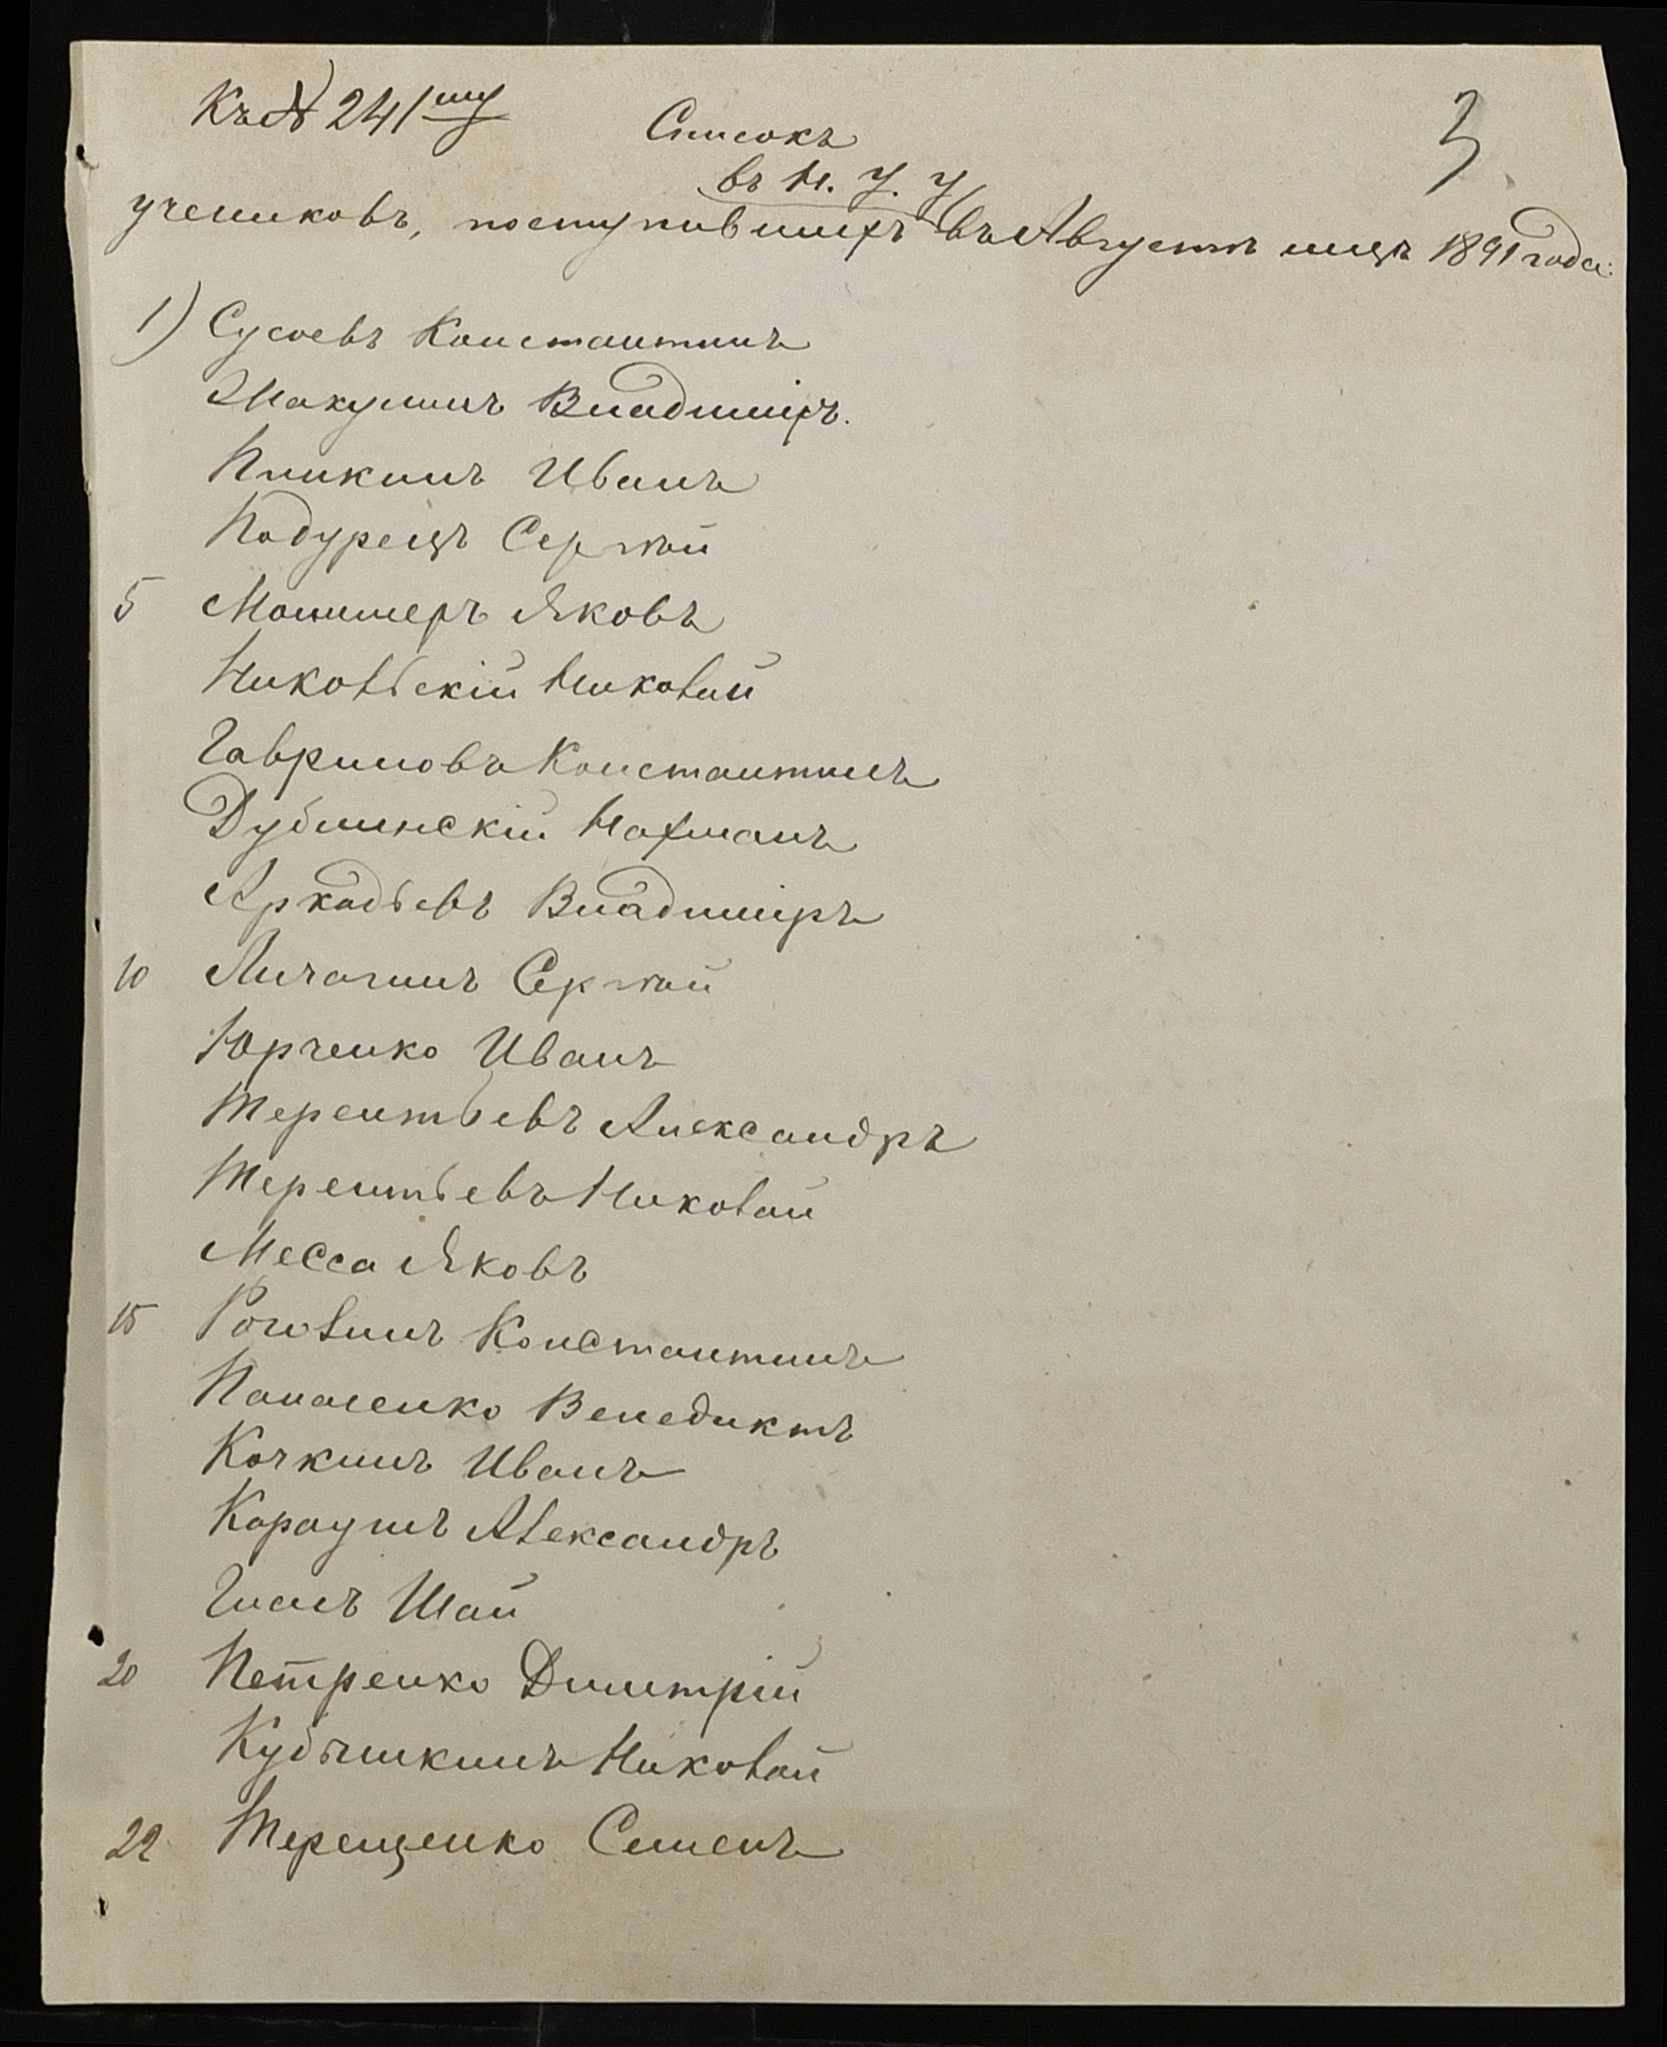 Къ № 241му
3
Списокъ
въ Н. У. У
учениковъ, поступившихъ въ Августѣ мцѣ 1891 года:
1) Сусоевъ Константинъ
Макушинъ Владиміръ.
Пишкинъ Иванъ
Подурецъ Сергѣй
5 Яковъ
Никольскій Николай
Гавриловъ Константинъ
Дублинскій Нахманъ
Аркадьевъ Владиміръ
10 Личагинъ Сергѣй
Юрченко Иванъ
Терентьевъ Александръ
Терентьевъ Николай
Месса Яковъ
15 Роговинъ Константинъ
Панасенко Венедиктъ
Кочкинъ Иванъ
Караулъ Александръ
Шай
20 Петренко Димитрій
Кубышкинъ Николай
22 Терещенко Семенъ